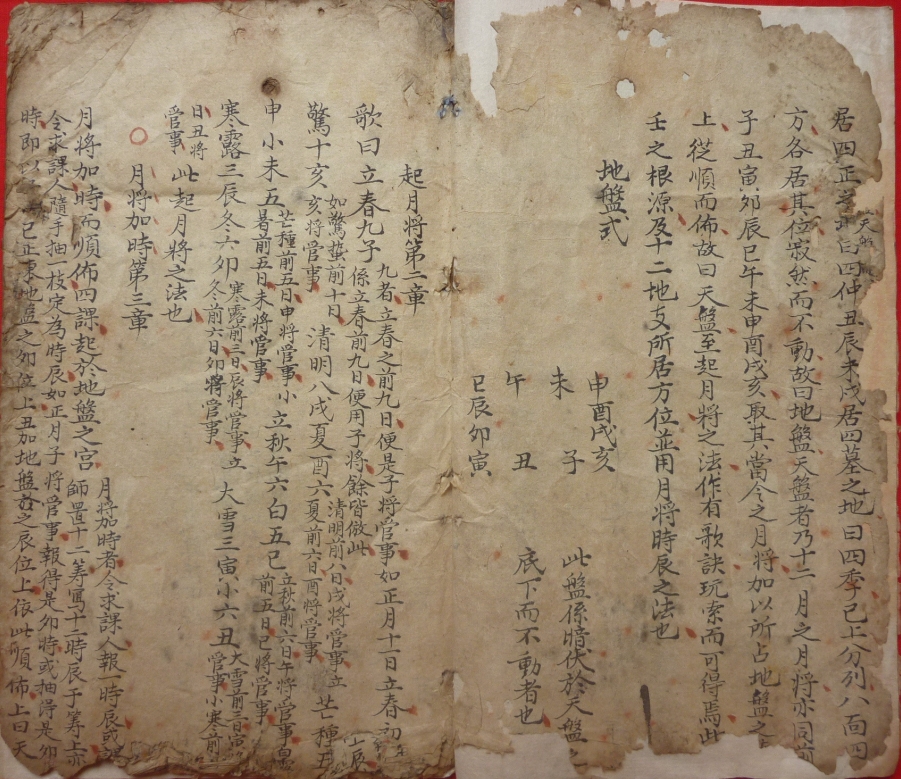 居四正之地曰四仲丑辰未戌居四墓之地曰四季已上分列八面四
方各居其位寂然而不動故曰地盤天盤者乃十二月之月將亦同前
天盤
子丑寅卯辰巳午未申酉戌亥取其當令之月將加以所占地盤之
上從順而佈故曰天盤至起月將之法作有歌訣玩索而可得焉此
壬之根源及十二地支所居方位並用月將時辰之法也
地盤式
申酉戌亥
未 子
午 丑
巳辰卯寅
此盤係暗伏於天盤之
底下而不動者也
起月將第二章
九者立春之前九日便是子將管事如正月十一日立春初
歌曰立春九子
係立春前九日便用子將餘皆倣此
驚十亥
如驚蟄前十日
亥將管事
清明八戌夏酉六
清明前八日戌將管事立
夏前六日酉將管事
芒種五
申小未五
芒種前五日申將管事小
暑前五日未將管事
立秋午六白五巳
立秋前六日午將管事白露
前五日巳將管事
寒露三辰冬六卯
寒露前三日辰將管事立
冬前六日卯將管事
大雪三寅小六丑
大雪前三日寅
管事小寒前
日丑將
管事
此起月將之法也
月將加時第三章
月將加時而順佈四課起於地盤之宮
月將加時者令求課人報一時辰或
師置十二筹寫十二時辰于筹上
令求課人隨手抽一枝定為時辰如正月子將管事報得是卯時或抽得是卯
時即以子 巳正東地盤之卯位上丑加地盤之辰位上依此順佈上曰天